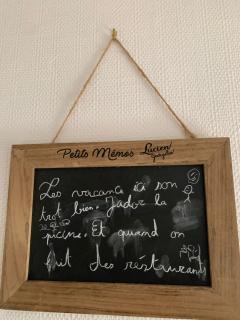 Petits Mémos Lucien
Les vacance ici son
trot bien. J'adore la
picine. Et quand on
fait des restaurants